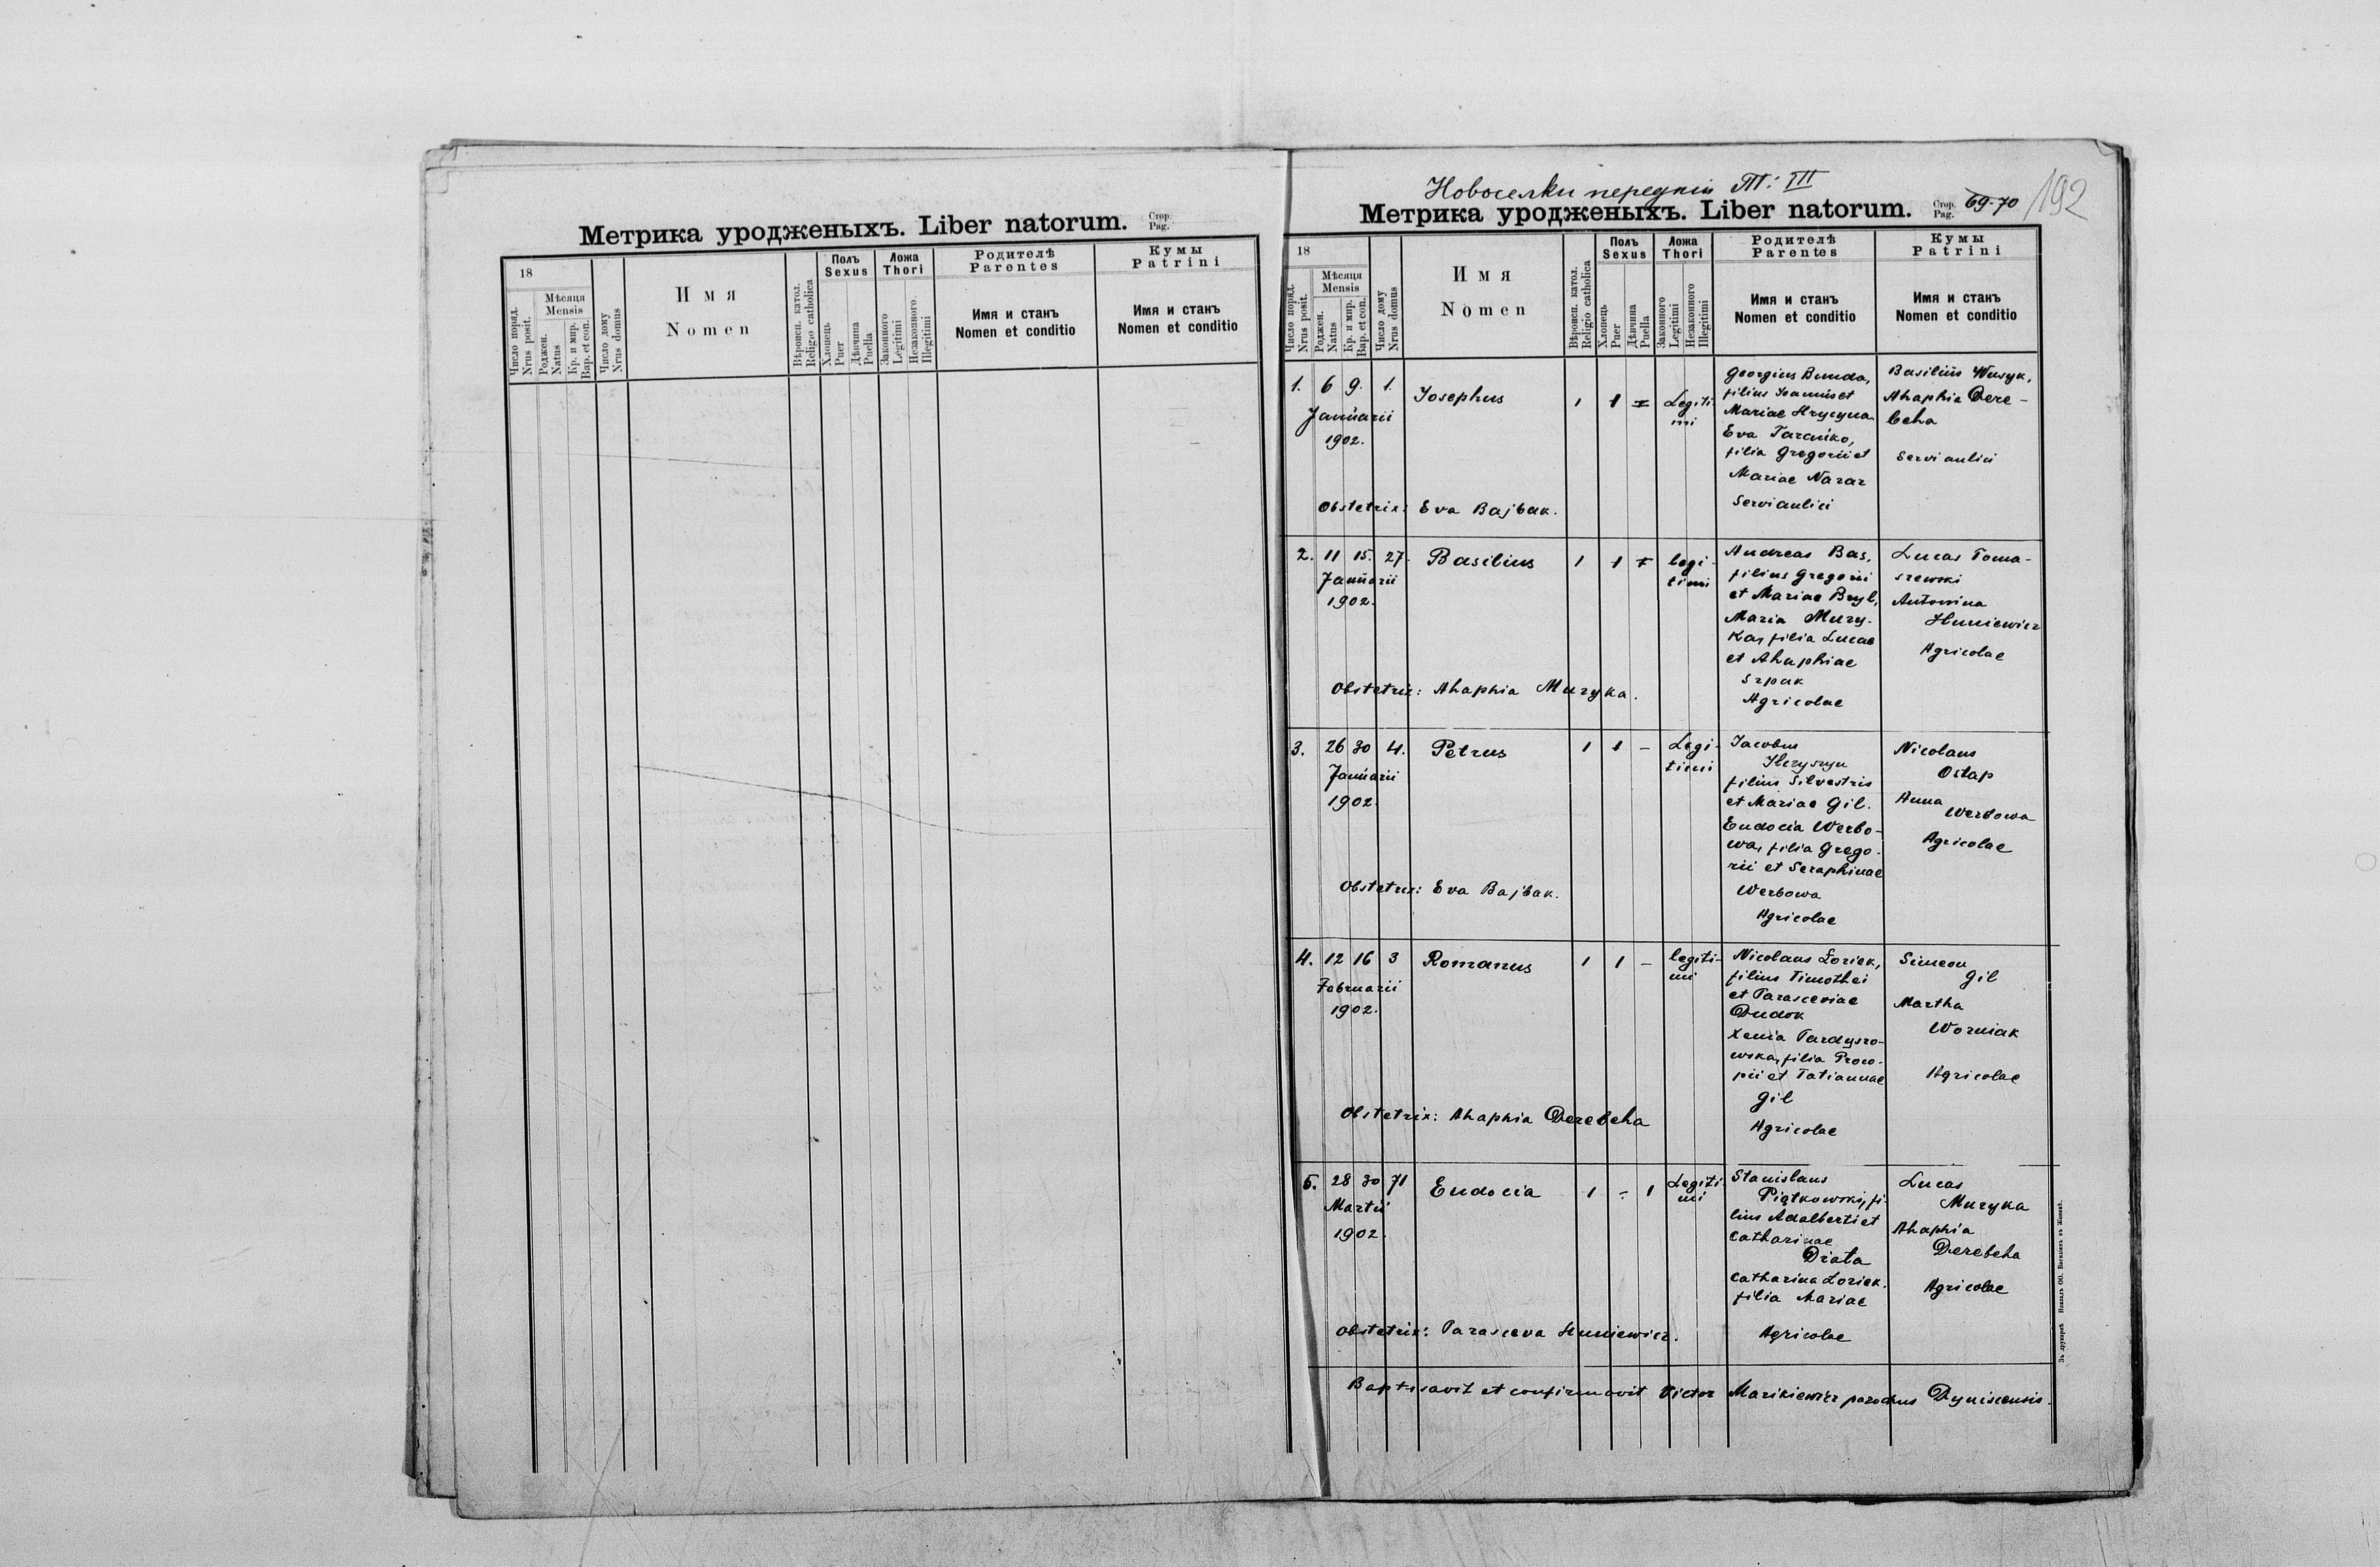 Метрика уродженыхъ. Liber natorum. Стор. Pag.
18
Число поряд. Nrus posit.
Мѣсяця Mensis
Роджен. Natus
Кр. и мир. Bap. et con.
Число дому Nrus domus
Имя
Nomen
Вѣроисп. катол. Religio catholica
Полъ Sexus
Хлопець Puer
Дѣвчина Puella
Ложа Thori
Законного Legitimi
Незаконного Illegitimi
Родителѣ
Parentes
Имя и станъ
Nomen et conditio
Кумы
Patrini
Имя и станъ
Nomen et conditio
Новоселки переднии Т: III
Метрика уродженыхъ. Liber natorum. Стор. Pag. 69-70 192
18
Число поряд. Nrus posit.
Мѣсяця Mensis
Роджен. Natus
Кр. и мир. Bap. et con.
Число дому Nrus domus
Имя
Nomen
Вѣроисп. катол. Religio catholica
Полъ Sexus
Хлопець Puer
Дѣвчина Puella
Ложа Thori
Законного Legitimi
Незаконного Illegitimi
Родителѣ
Parentes
Имя и станъ
Nomen et conditio
Кумы
Patrini
Имя и станъ
Nomen et conditio
1. 6 9. 1. Josephus 1 1 - Legiti
mi
Januarii
1902.
Georgius Bunda,
filius Joannis et
Mariae Hrycyna
Eva Tarcuiko,
filia Gregorii et
Mariae Nazar
Servi aulici
Basilius Wusyk,
Ahaphia Dere-
beha
Servi aulici
Obstetrix: Eva Bajbak.
2. 11 15. 27. Basilius 1 1 - legi-
timi
Januarii
1902.
Andreas Bas,
filius Gregorii
et Mariae Bryl,
Maria Muzy-
ka, filia Lucae
et Ahaphiae
Szpak
Agricolae
Lucas Toma-
szewski
Antonina
Huniewicz
Agricolae
Obstetrix: Ahaphia Muzyka.
3. 26 30 4. Petrus 1 1 - Legi-
timi
Januarii
1902.
Jacobus
Hryszyn
filius Silvestris
et Mariae Gil.
Eudocia Werbo-
wa, filia Grego-
rii et Seraphinae
Werbowa
Agricolae
Nicolaus
Ostap
Anna
Werbowa
Agricolae
Obstetrix: Eva Bajbak.
4. 12 16 3 Romanus 1 1 - legiti-
mi
Februarii
1902.
Nicolaus Loziek,
filius Timothei
et Parasceviae
Dudok
Xenia Pardyszo-
wska, filia Proco-
pii et Tatiannae
Gil
Agricolae
Simeon
Gil
Martha
Wozniak
Agricolae
Obstetrix: Ahaphia Derebeha
5. 28 30 71 Eudocia 1 - 1 Legiti-
mi
Martii
1902.
Stanislaus
Piątkowski, fi-
lius Adalberti et
Catharinae
Działa
Catharina Loziek.
filia Mariae
Agricolae
Lucas
Muzyka
Ahaphia
Derebeha
Agricolae
Obstetrix: Parasceva Huniewicz.
Baptisavit et confirmavit Victor Mazikiewicz parochus Dyniscensis.